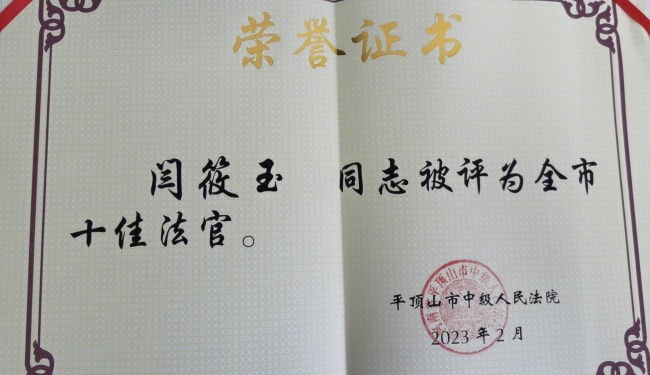 荣誉证书
闫筱玉 同志被评为全市
十佳法官。
平顶山市中级人民法院
2023年2月